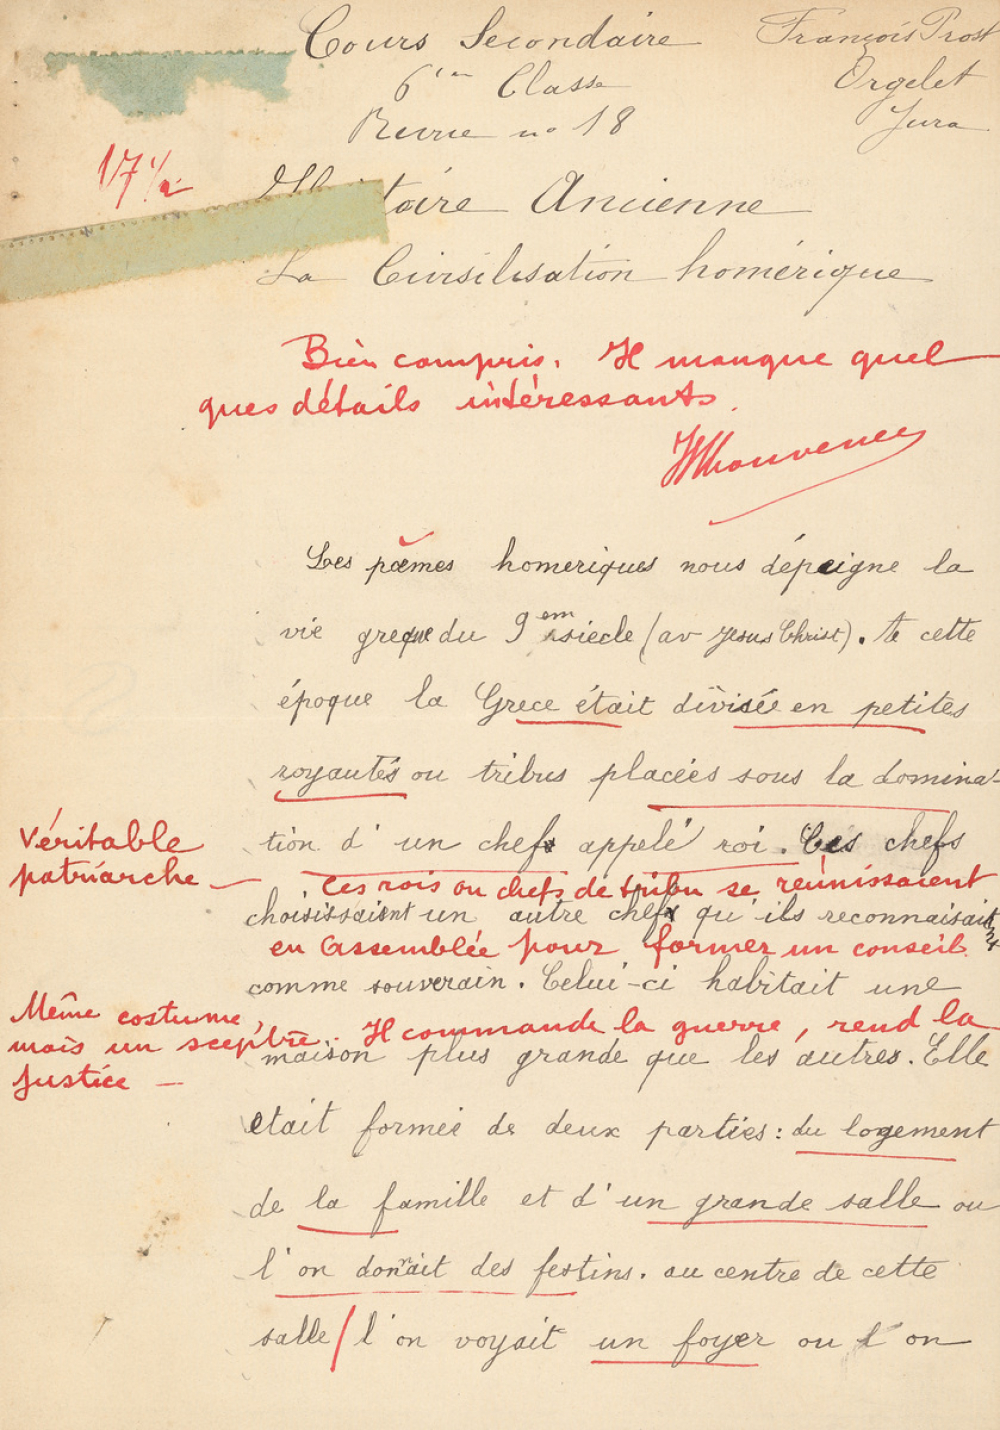 Cours Secondaire François Prost
6ième Classe Orgelet
Revue no 18 Jura
17 1/2
Histoire Ancienne
La Civilisation homérique
Bien compris. Il manque quel
ques détails intéressants.
Les pœmes homeriques nous dépeigne la
vie greque du 9em siecle (av Jesus Christ). A cette
époque la Grece était divisée en petites
royautés ou tribus placées sous la domina-
tion d'un chef appelé roi. Ces chefs
Véritable
patriarche —
Ces rois ou chefs de tribu se réunissaient
choisissaient un autre chef qu'ils reconnaisait
en Assemblée pour former un conseil.
comme souverain. Celui-ci habitait une
Même costume,
mais un sceptre. Il commande la guerre, rend la
justice —
maison plus grande que les autres. Elle
etait formée de deux parties : du logement
de la famille et d'un grande salle ou
l'on donnait des festins. au centre de cette
salle/l'on voyait un foyer ou l'on